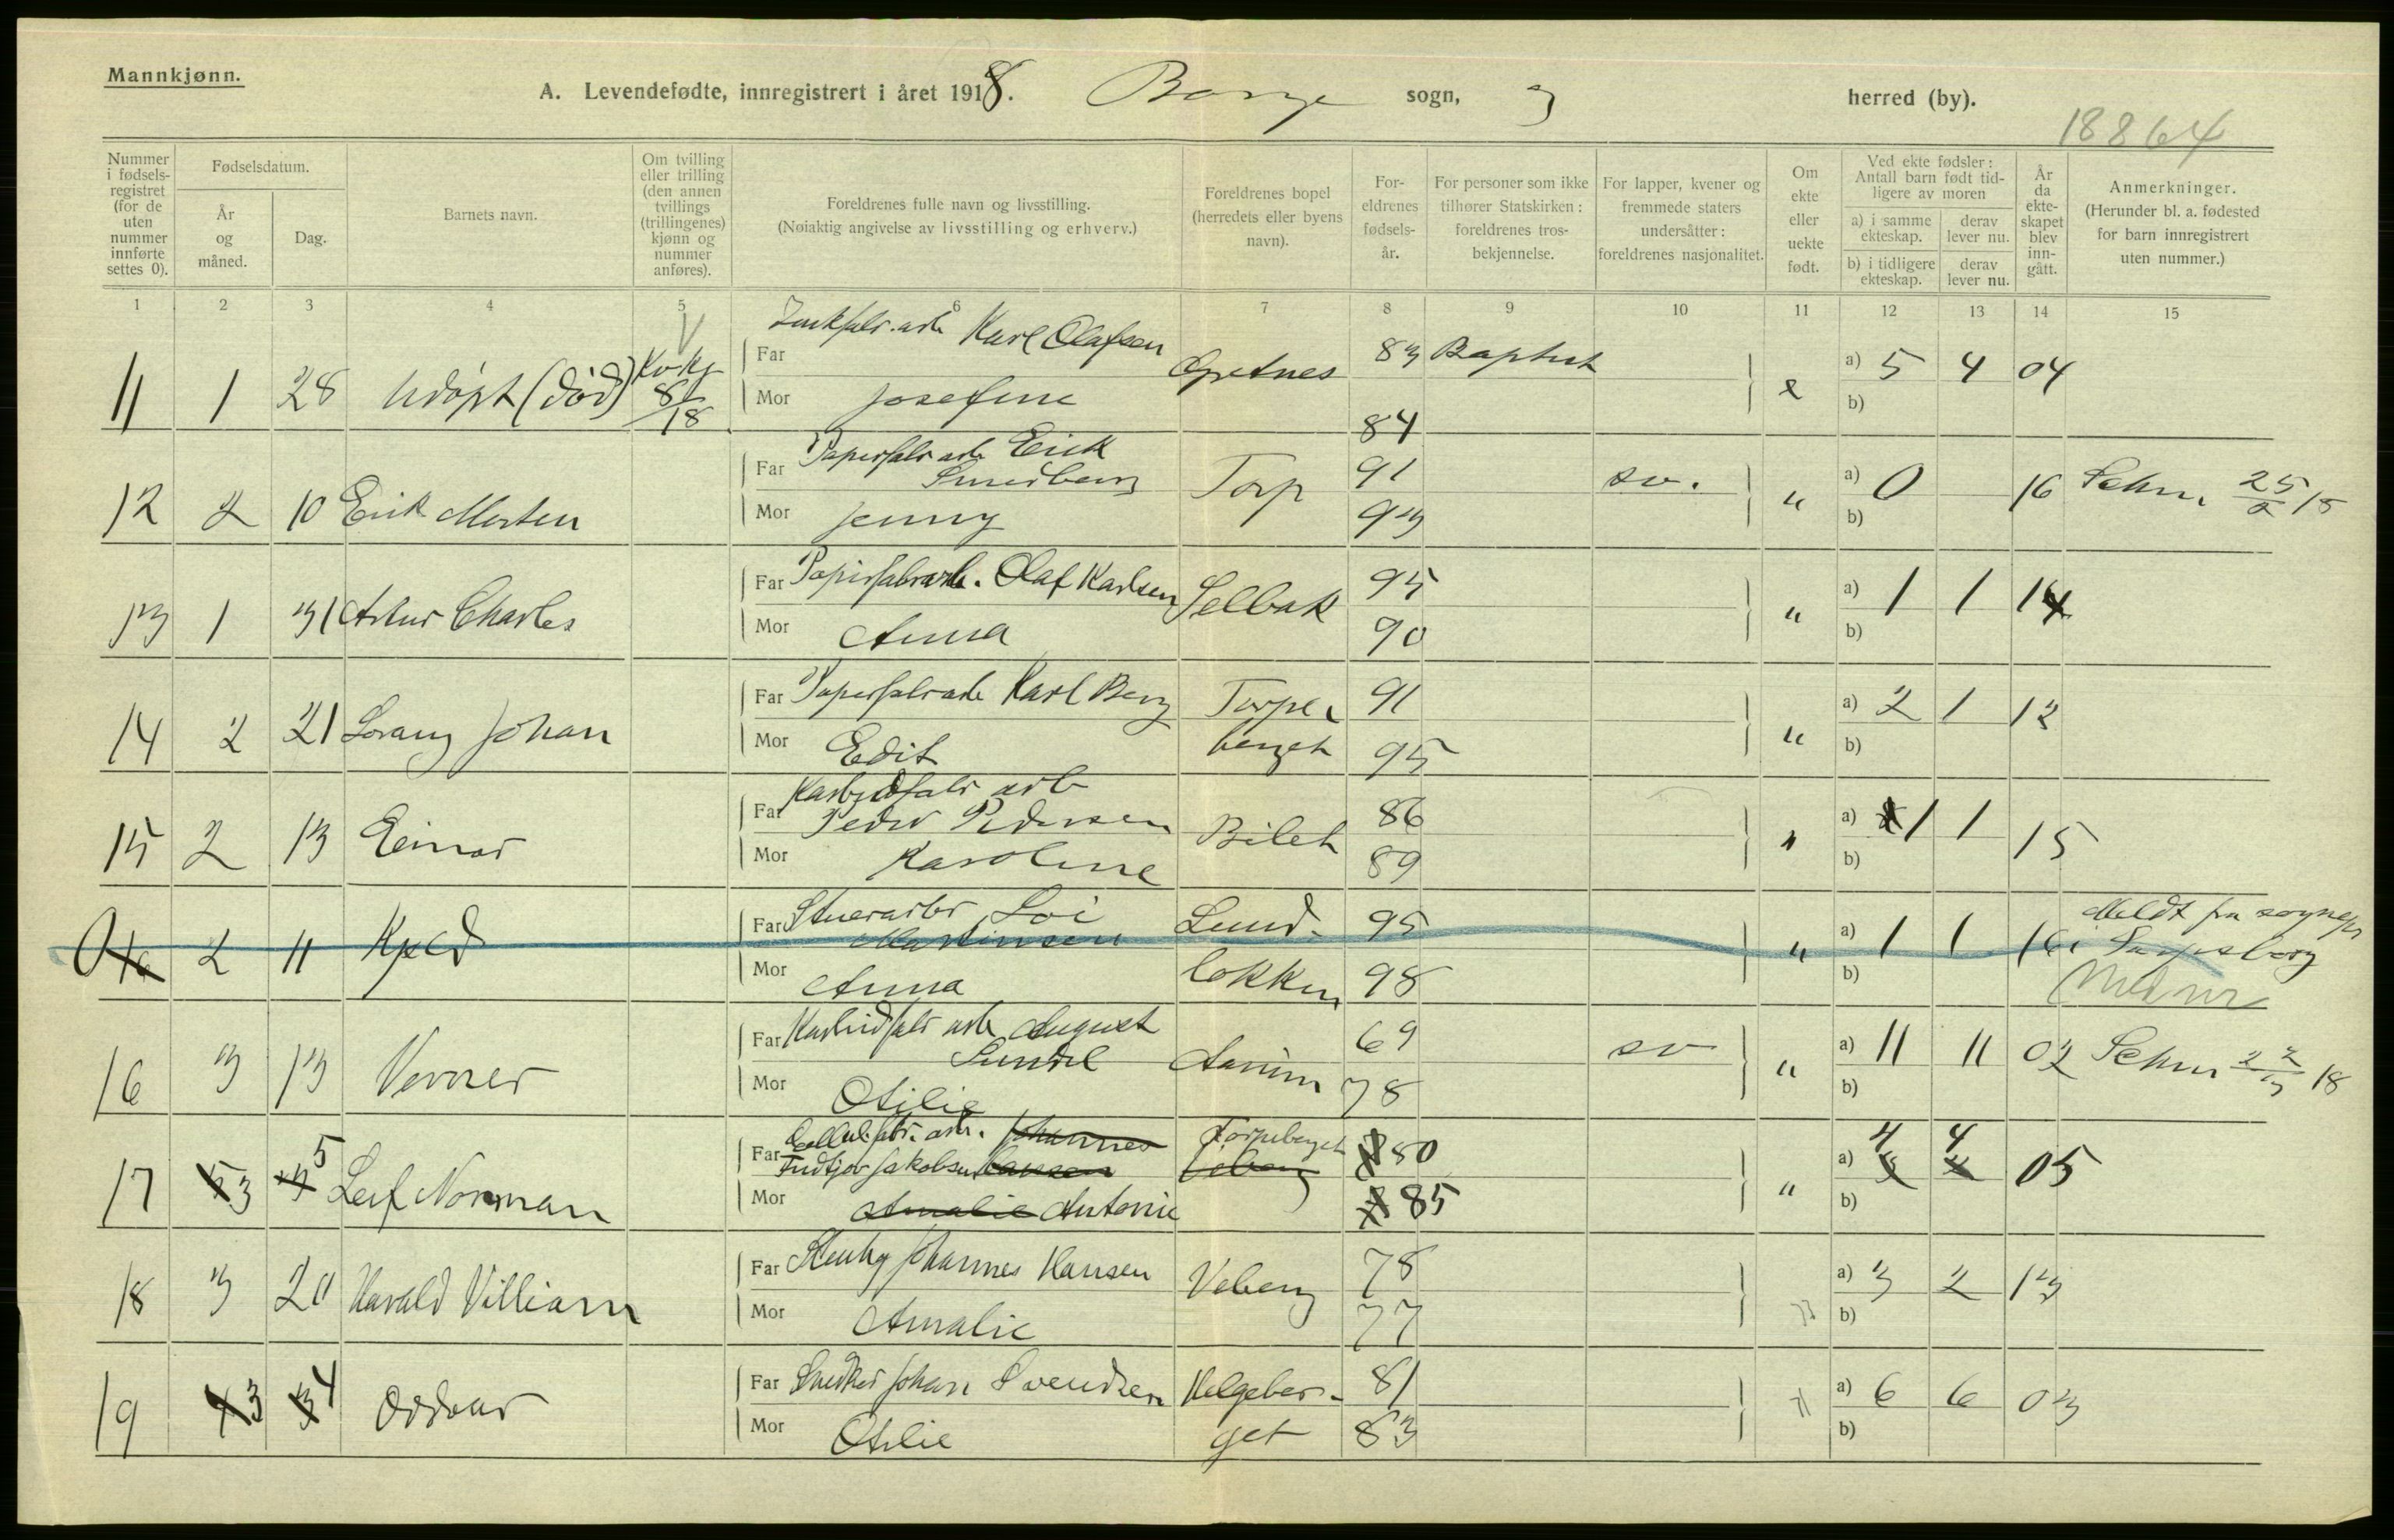 Mannkjønn.
A. Levendefødte, innregistrert i året 1918. Borge sogn, herred (by).
18864
Nummer i fødsels-registret (for de uten nummer innførte settes 0).
Fødselsdatum.
År og måned.
Dag.
Barnets navn.
Om tvilling eller trilling (den annen tvillings (trillingenes) kjønn og nummer anføres).
Foreldrenes fulle navn og livsstilling.
(Nøiaktig angivelse av livsstilling og erhverv.)
Foreldrenes bopel (herredets eller byens navn).
For-eldrenes fødsels-år.
For personer som ikke tilhører Statskirken: foreldrenes tros-bekjennelse.
For lapper, kvener og fremmede staters undersåtter: foreldrenes nasjonalitet.
Om ekte eller uekte født.
Ved ekte fødsler: Antall barn født tid-ligere av moren
a) i samme ekteskap. derav lever nu.
b) i tidligere ekteskap. derav lever nu.
År da ekte-skapet blev inn-gått.
Anmerkninger.
(Herunder bl. a. fødested for barn innregistrert uten nummer.)
1 2 3 4 5 6 7 8 9 10 11 12 13 14 15
11 1 28 Udøpt (død) Far Karl Olafsen 83 Baptist e a) 5 4 04
Mor Josefine Opetnes 84 b)
12 2 10 Erik Morten Far Papirfabr arb Erick Torp 91 sv. " a) 0 16
Mor Jenny 93 b)
13 1 31 Artur Charles Far Papirfabrarb. Olaf Karlsen Selbak 95 " a) 1 1 14
Mor Anna 90 b)
14 2 21 Lorang Johan Far Papirfabr arb Karl Berg Torpe- 91 " a) 2 1 12
Mor Edit berget 95 b)
15 2 13 Einar Far Karbidfabr arb Peder Pedersen Bilet 86 " a) 1 1 15
Mor Karoline 89 b)
0 2 11 Kjeld Far Martinsen Lund- 95 " a) 1 1 16 Meldt fra sognepr i Sarpsborg
Mor Anna løkken 98 b)
16 3 13 Verner Far Karbidfabr arb August 69 sv " a) 11 11 02
Mor Otilie 78 b)
17 3 5 Leif Norman Far Cellul.fabr. arb. Johannes Torpeberget 80 " a) 4 4 05
Fridtjov Jakobsen Hansen Veberg
Mor Amalie Antonie 85 b)
18 3 20 Harald Villiam Far Johannes Hansen Veberg 78 " a) 3 2 13
Mor Amalie 77 b)
19 3 4 Oddvar Far Snedker Johan Svendsen Helgeber- 81 " a) 6 6 03
Mor Otilie get 83 b)